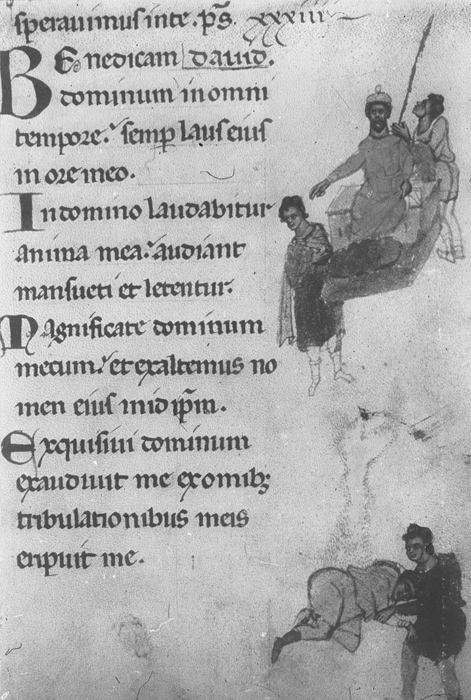 sperauimus in te. ps. xxxiii
Benedicam dauid.
dominum in omni
tempore: semp laus eius
in ore meo.
In domino laudabitur
anima mea: audiant
mansueti et letentur.
Magnificate dominum
mecum: et exaltemus no
men eius in id ipm.
Exquisiui dominum
exaudiuit me ex omnibꝫ
tribulationibus meis
eripuit me.